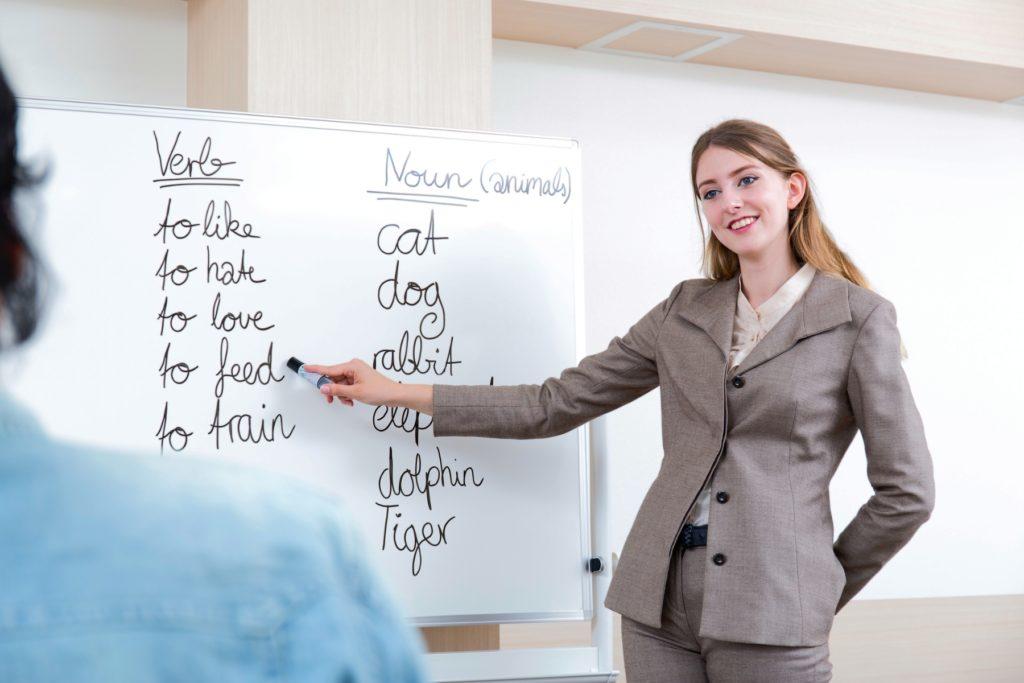 Verb
to like
to hate
to love
to feed
to train
Noun (animals)
cat
dog
rabbit
dolphin
Tiger